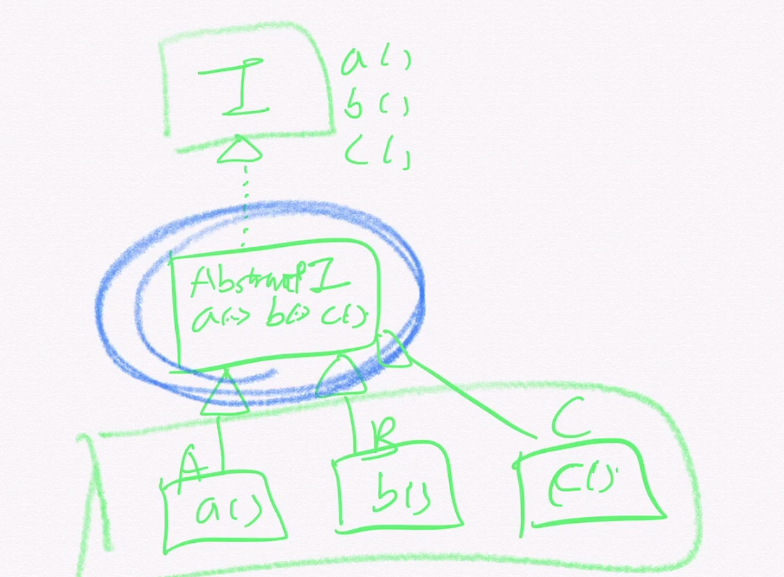 I
a()
b()
c()
Abstract I
a() b() c()
A
B
C
a()
b()
C()